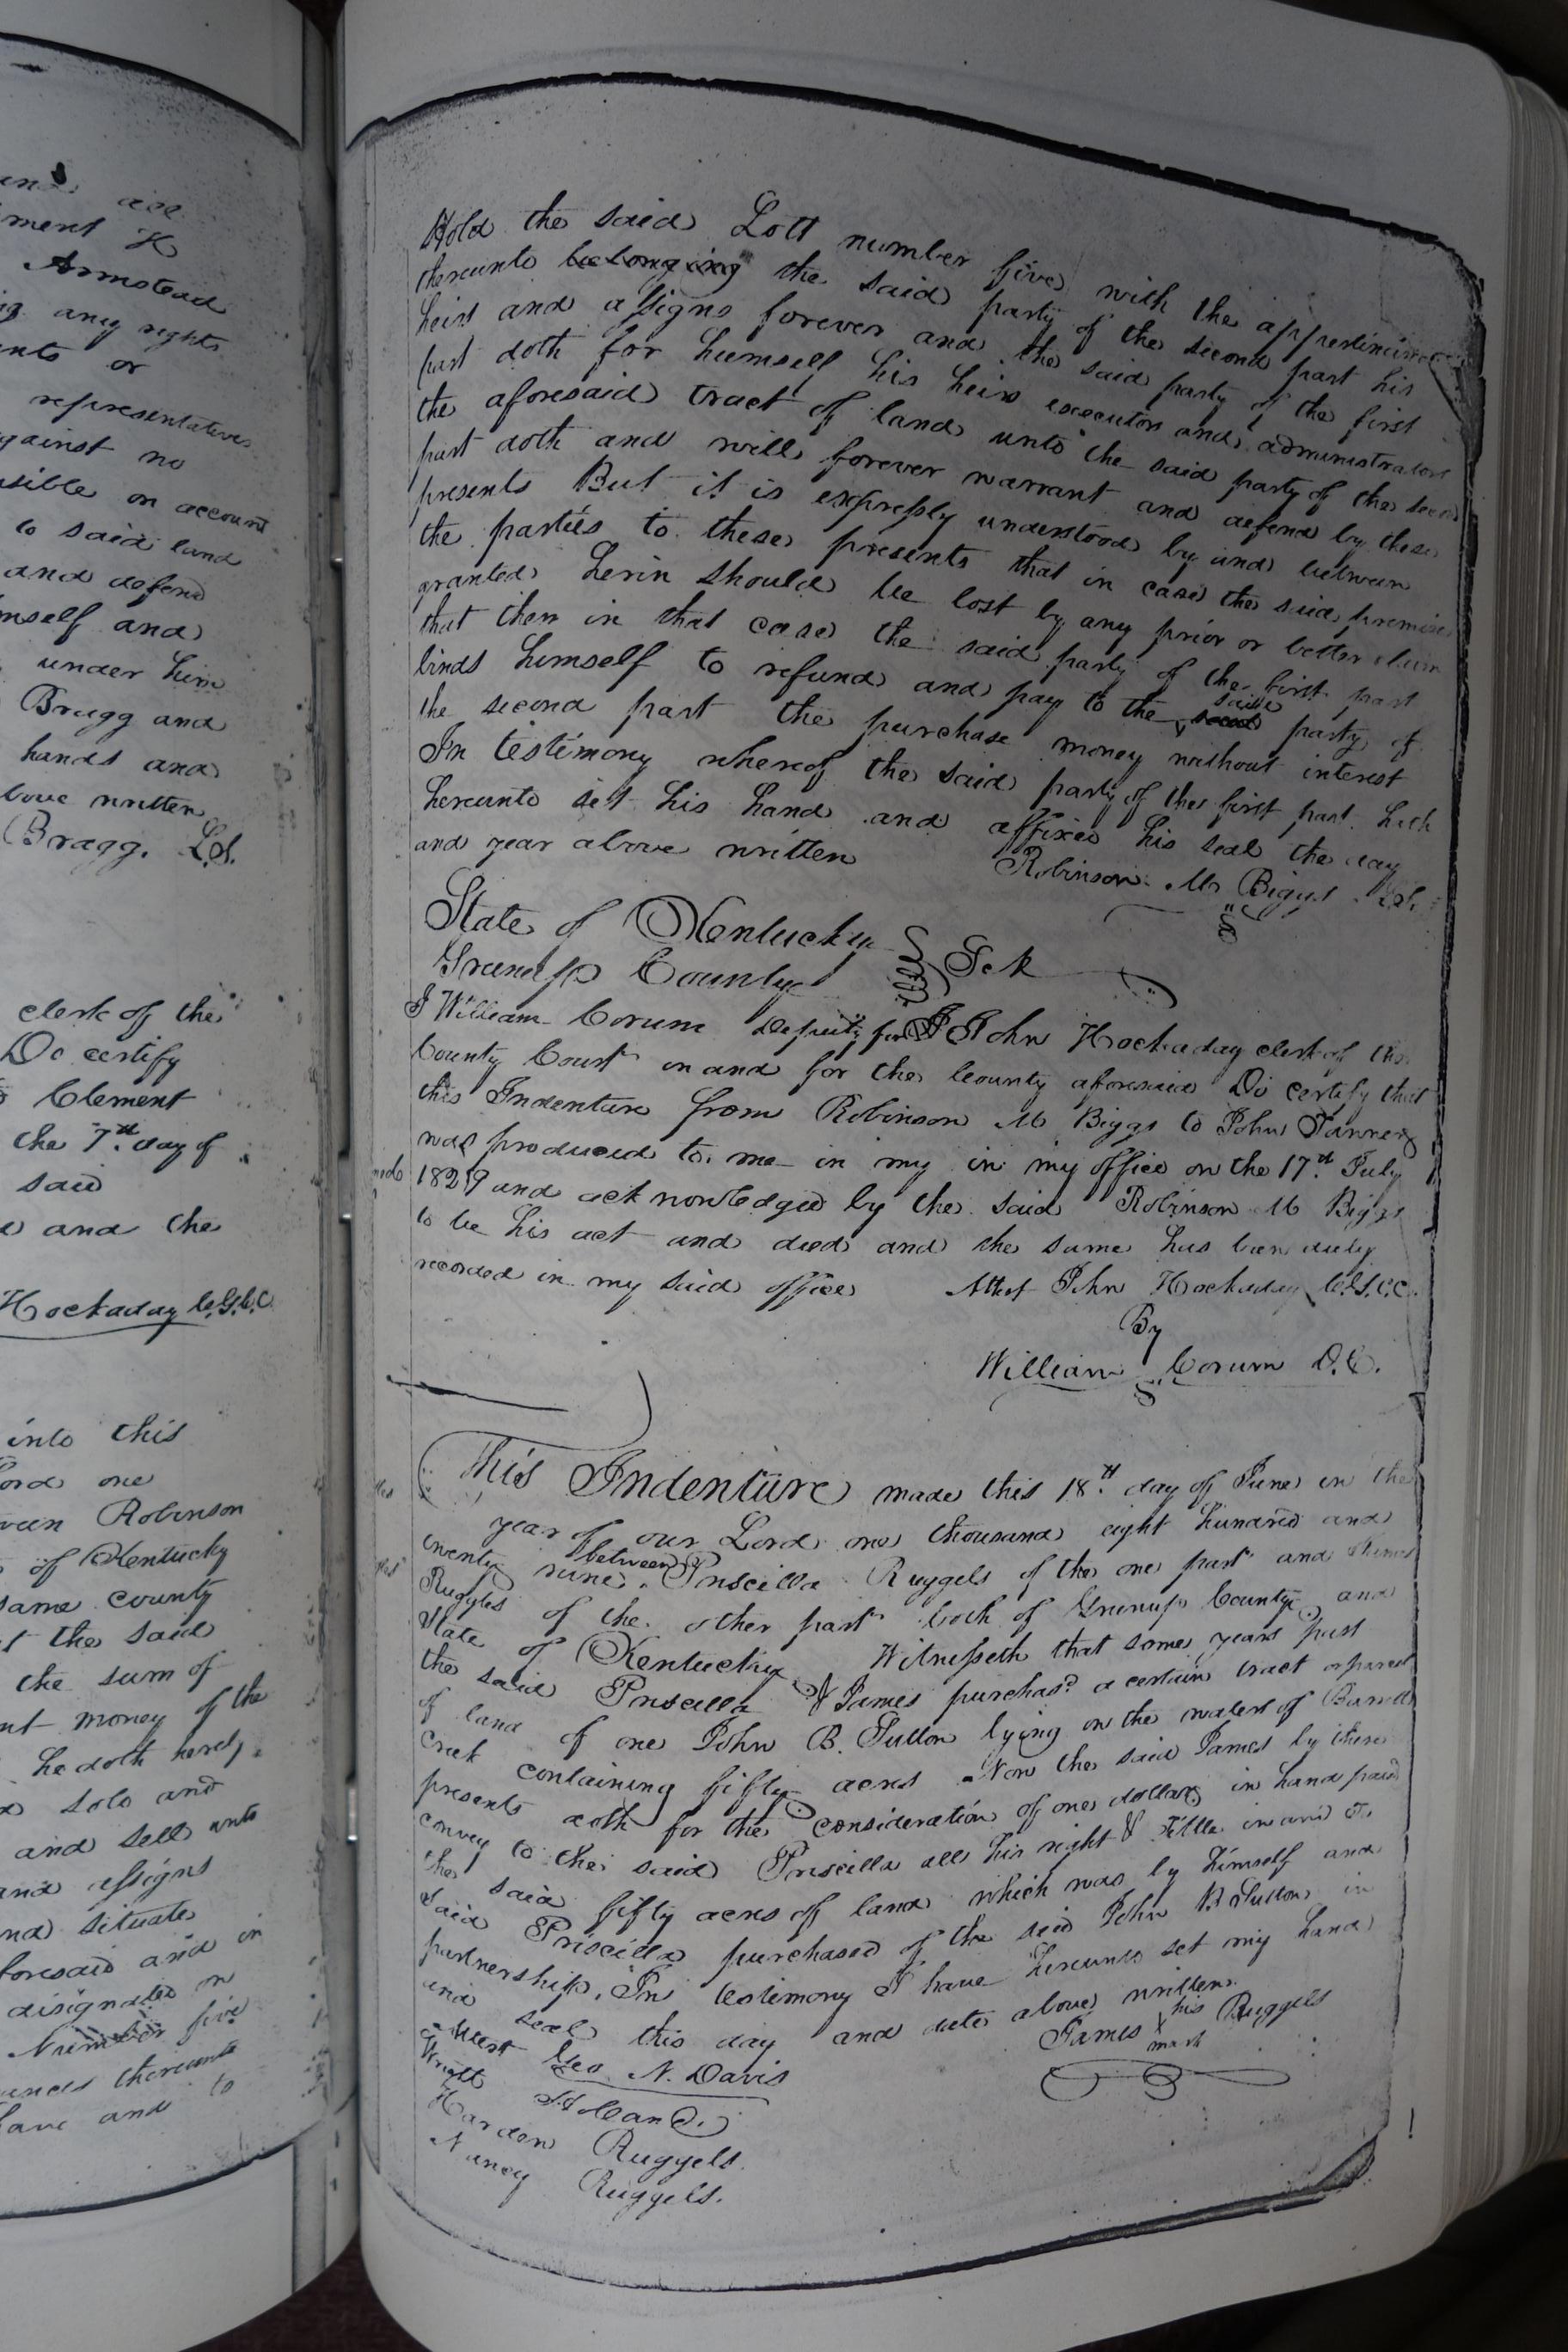 and all
ment H
Armstead
ig any rights
ents or
representatives
against no
sible on account
to said land
and defend
mself and
under him
Bragg and
hands and
bove written
Bragg. L.S.
clerk of the
Do certify
Clement
the 7th day of
said
and the
Hockaday C.G.C.C.
into this
Lord one
ween Robinson
of Kentucky
same county
t the said
the sum of
nt money of the
he doth hereby
sold and
and sell unto
and assigns
nd situate
foresaid and in
designated on
Number five
ances thereunto
have and to
Hold the said Lott number five with the appertinances
thereunto belonging the said party of the second part his
heirs and assigns forever and the said party of the first
part doth for himself his heirs executors and administrators
the aforesaid tract of land unto the said party of the second
part doth and will forever warrant and defend by these
presents But it is expressly understood by and between
the parties to these presents that in case the said premises
granted herin should be lost by any prior or better claim
that then in that case the said party of the first part
binds himself to refund and pay to the said party of
the second part the purchase money without interest
In testimony whereof the said party of the first part hath
hereunto set his hand and affixed his seal the day
and year above written Robinson M Biggs L.S.
State of Kentucky
Greenup County Sct
I William Corum Deputy for John Hockaday clerk of the
County Court in and for the County aforesaid Do certify that
this Indenture from Robinson M Biggs to John Tanner
was produced to me in my in my office on the 17th July
1829 and acknowledged by the said Robinson M Biggs
to be his act and deed and the same has been duly
recorded in my said office Attest John Hockaday C.G.C.C.
By
William Corum D.C.
This Indenture made this 18th day of June in the
year of our Lord one thousand eight hundred and
twenty nine between Priscilla Ruggels of the one part and James
Ruggles of the other part both of Greenup County and
State of Kentucky Witnesseth that some years past
the said Priscilla & James purchasd a certain tract or parcel
of land of one John B. Sutton lying on the waters of Barrett
creek containing fifty acres Now the said James by these
presents doth for the consideration of one dollar in hand paid
convey to the said Priscilla all his right & title in and to
the said fifty acres of land which was by himself and
said Priscilla purchased of the said John B Sutton in
partnership. In testimony I have hereunto set my hand
and seal this day and date above written.
Attest Geo. N. Davis James his X mark Ruggels
Harden Ruggels.
Nancy Ruggels.